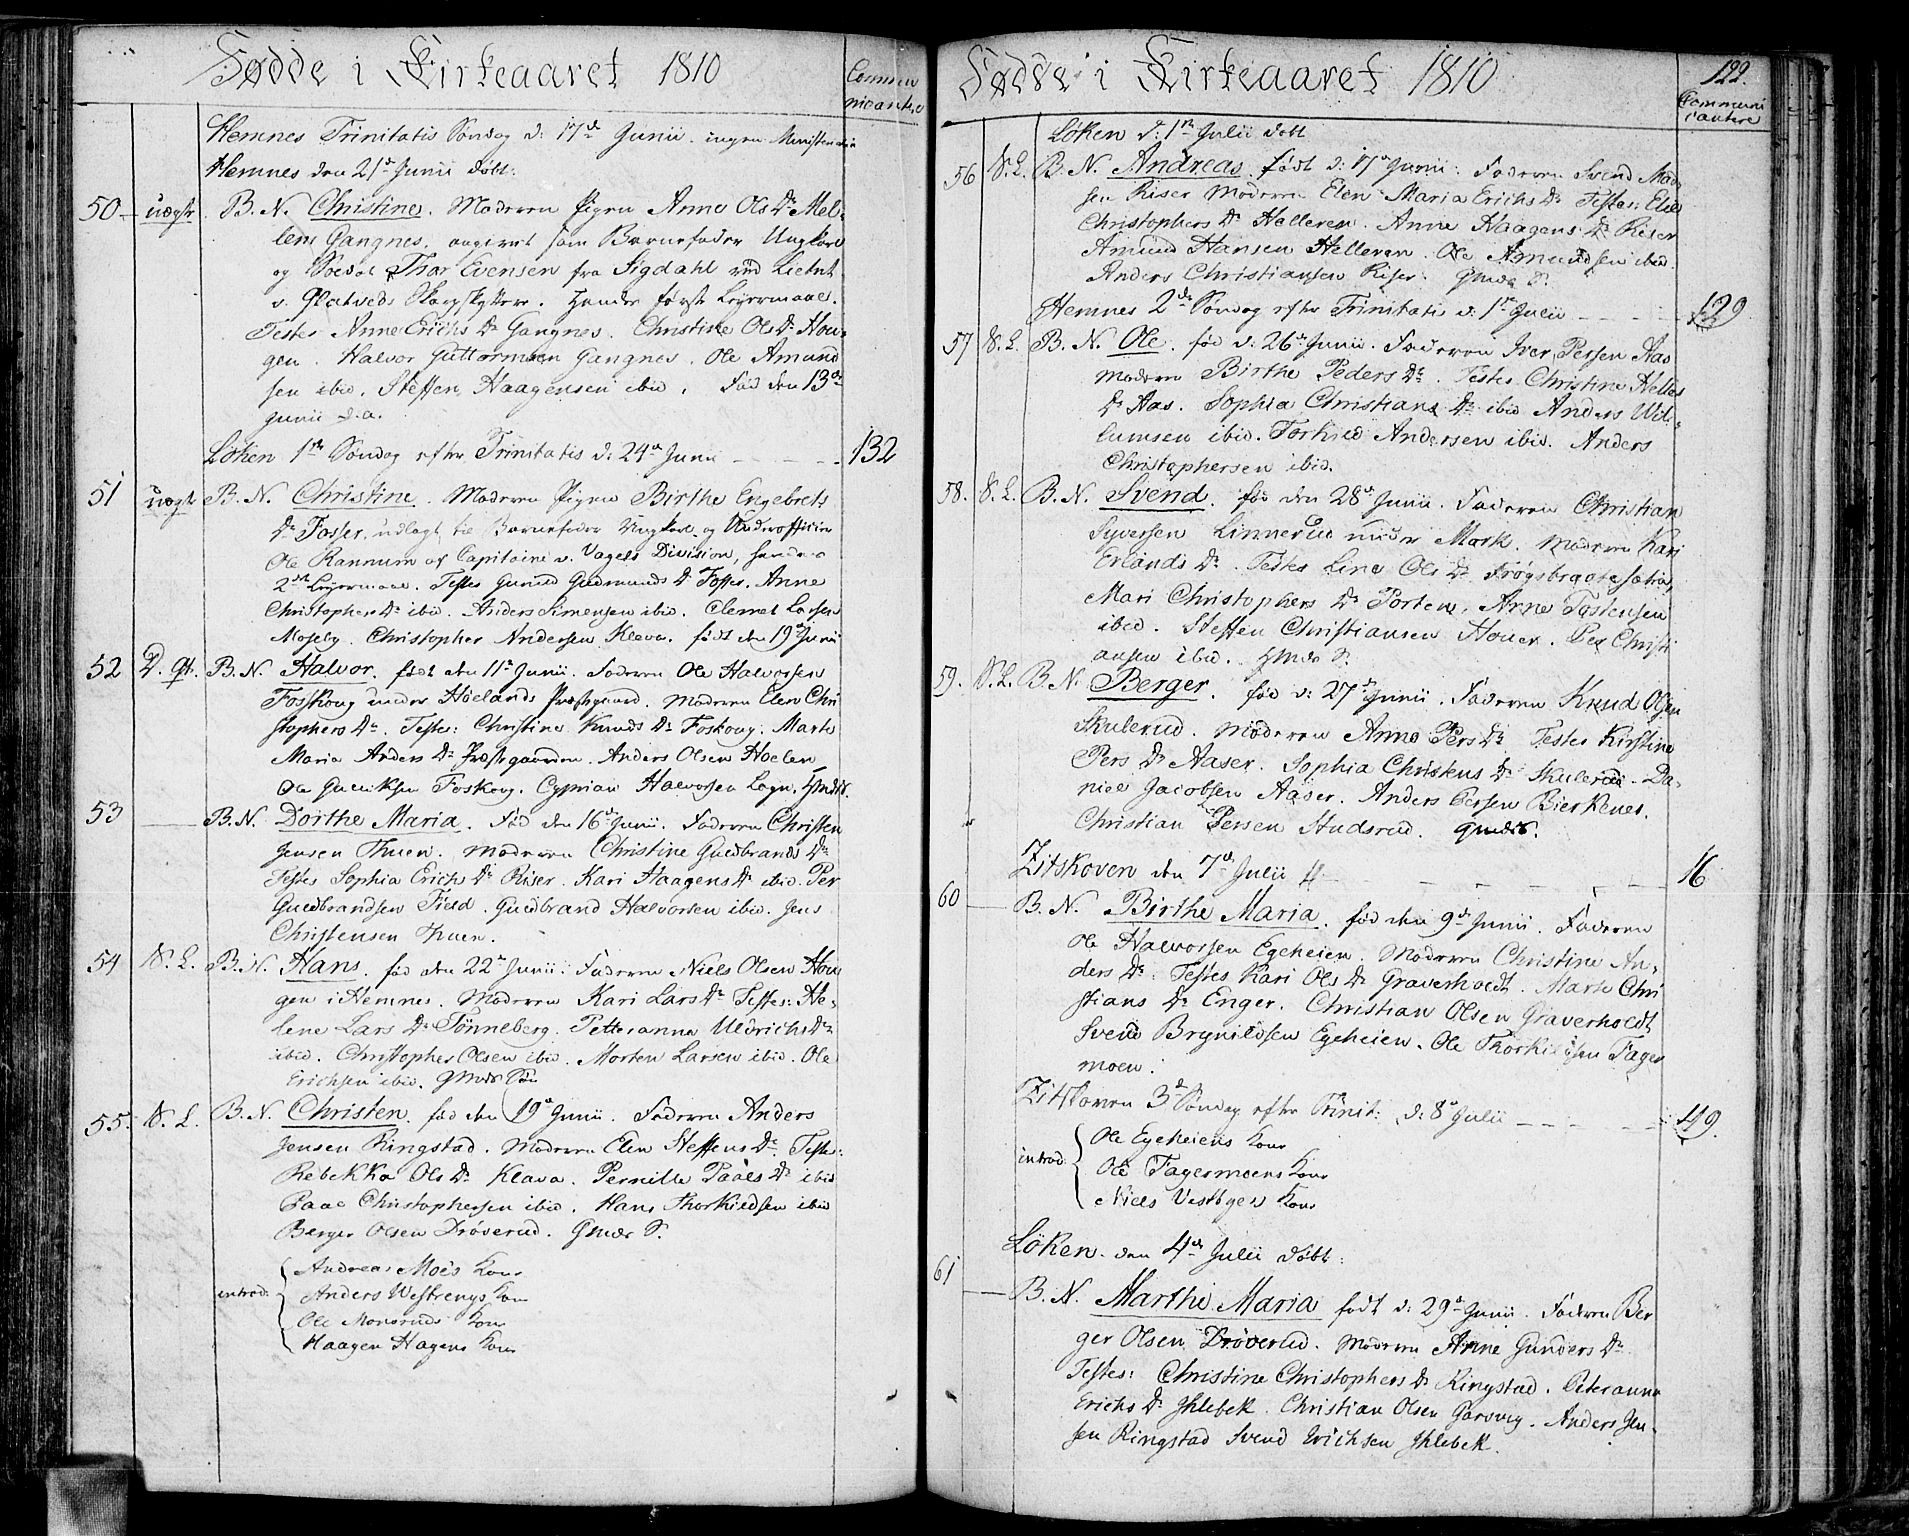 Födde i Kirkeaaret 1810
Commu
nicantere
Hemnes Trinitatis Söndag d: 17de Junii. ingen Ministerialia
Hemnes den 21de Junii döbt:
50 uægte B. N. Christine. Moderen Pigen Anne Ols Dr Mel-
lem Gangnes. angivet som Barnefader Ungkarl
og Soldat Thor Evensen fra Sigdahl ved Lieut
v. Qvalveds Skarpskyttere. Hendes förste Leyermaal.
Testes Anne Erichs Dr Gangnes. Christine Ols Dr Hou-
gen. Halvor Guttormsen Gangnes. Ole Amund
sen ibid. Steffen Haagensen ibid. Föd den 13de
Junii d.a.
Löken 1ste Söndag efter Trinitatis d: 24de Junii - - - - 132
51 uægte B. N. Christine. Moderen Pigen Birthe Engebrets
Dr Fosser, udlagt til Barnefader Ungkarl og Underofficier
Ole Rannum af Capitaine v. Vagels Division, hendes
2det Leyermaal. Testes Gunild Gudmunds Dr Fosser. Anne
Christopher Dr ibid. Anders Simensen ibid. Clemet Larsen
Moseby. Christopher Andersen Kleva. födt den 19de Junii
52 D. qt. B. N. Halvor. födt den 11te Junii. Faderen Ole Halvorsen
Fosskoug under Hölands Præstgaard. Moderen Elen Chri
stophers Dr. Testes: Christine Knuds Dr Foskoug. Marte
Maria Anders Dr Præstgaarden. Anders Olsen Hoelen
Ole Gulliksen Foskoug. Cyprian Halvorsen Logn. Gmds S.
53 B. N. Dorthe Maria. Föd den 16de Junii. Faderen Christen
Jensen Thuen. Moderen Christine Guldbrands Dr
Testes Sophia Erichs Dr Riser. Kari Haagens Dr ibid. Per
Guldbrandsen Field. Guldbrand Halvorsen ibid. Jens
Christensen Thuen.
54 S. L. B. N. Hans. föd den 22de Junii. Faderen Niels Olsen Hou
gen i Hemnes. Moderen Kari Lars Dr Testes: He-
lene Lars Dr Tönneberg. Petteranna Uldrichs Dr
ibid. Christopher Olsen ibid. Morten Larsen ibid. Ole
Erichsen ibid. Gmds Sön
55. S. L. B. N. Christen. föd den 19de Junii. Faderen Anders
Jensen Ringstad. Moderen Elen Steffens Dr. Testes:
Rebekka Ols Dr Klava. Pernille Paals Dr ibid
Paal Christophersen ibid. Hans Thorkildsen ibid
Berger Olsen Dröverud. Gmds S.
introd: Andreas Moes Kone
Anders Westrengs Kone
Ole Monsruds Kone
Haagen Hagens Kone
Födde i Kirkeaaret 1810
122.
Communi
cantere
Löken d: 1ste Julii döbt
56 S. L. B. N. Andreas. födt d: 17de Junii. Faderen Svend Mad
sen Riser Moderen Elen Maria Erichs Dr Testes: Elie
Christophers Dr Helleren. Anne Haagens Dr Riser
Amund Hansen Helleren. Ole Amundsen ibid.
Anders Christiansen Riser. Gmds S.
Hemnes 2den Söndag efter Trinitatis d: 1ste Julii - - - - 129
57 S. L. B. N. Ole. föd d: 26de Junii. Faderen Iver Persen Aas
Moderen Birthe Peders Dr. Testes Christine Helles
Dr Aas. Sophia Christians Dr ibid Anders Wil-
lumsen ibid. Torkild Andersen ibid. Anders
Christophersen ibid.
58. S. L. B. N. Svend. föd den 28de Junii. Faderen Christian
Syversen Linnerud under Mork. Moderen Kari
Erlands Dr. Testes Line Ols Dr Frögsbraate sætra,
Mari Christophers Dr Porten. Arne Tostensen
ibid. Steffen Christiansen Houer. Per Christi
ansen ibid. Gmds S.
59. S. L. B. N. Berger. föd d: 27de Junii. Faderen Knud Olsen
Skulerud. Moderen Anne Pers Dr Testes Kirstine
Pers Dr Aaser. Sophia Christens Dr Skulerud. Da-
niel Jacobsen Aaser. Anders Persen Bierkenes.
Christian Persen Hudsrud. Gmds S.
Zitskoven den 7de Julii - - - - 16
60 B. N. Birthe Maria. föd den 9de Junii. Faderen
Ole Halvorsen Egeheien. Moderen Christine An-
ders Dr. Testes Kari Ols Dr Graverholdt. Marte Chri
stians Dr Enger. Christian Olsen Graverholdt
Svend Brynildsen Egeheien. Ole Thorkildsen Fager
moen.
Zitskoven 3de Söndag efter Trinit: d: 8de Julii - - - - 149.
introd: Ole Egeheiens Kone
Ole Fagermoens Kone
Niels Vestbyes Kone
Löken den 4de Julii döbt:
61 B. N. Marthe Maria födt d: 29de Junii. Faderen Ber
ger Olsen Dröverud. Moderen Anne Gunders Dr
Testes: Christine Christophers Dr Ringstad. Peteranna
Erichs Dr Ihlebek. Christian Olsen Garsvig. Anders Jen-
sen Ringstad Svend Erichsen Ihlebek.